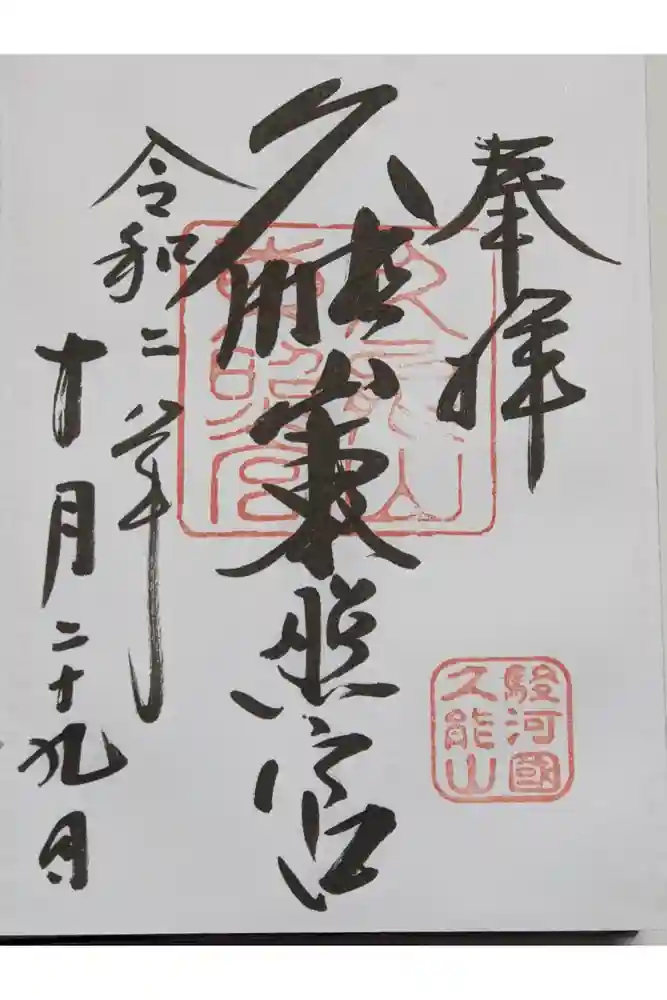 奉拝
久能山東照宮
令和二年
十月二十九日
久能山
東照宮
駿河國
久能山